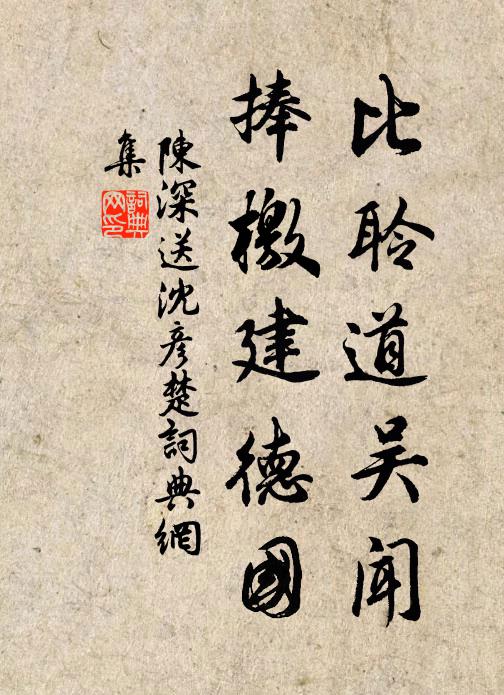 比聆道吴闻
捧檄建德國
陳深送沈彦楚詞典網
集
詞典
网印